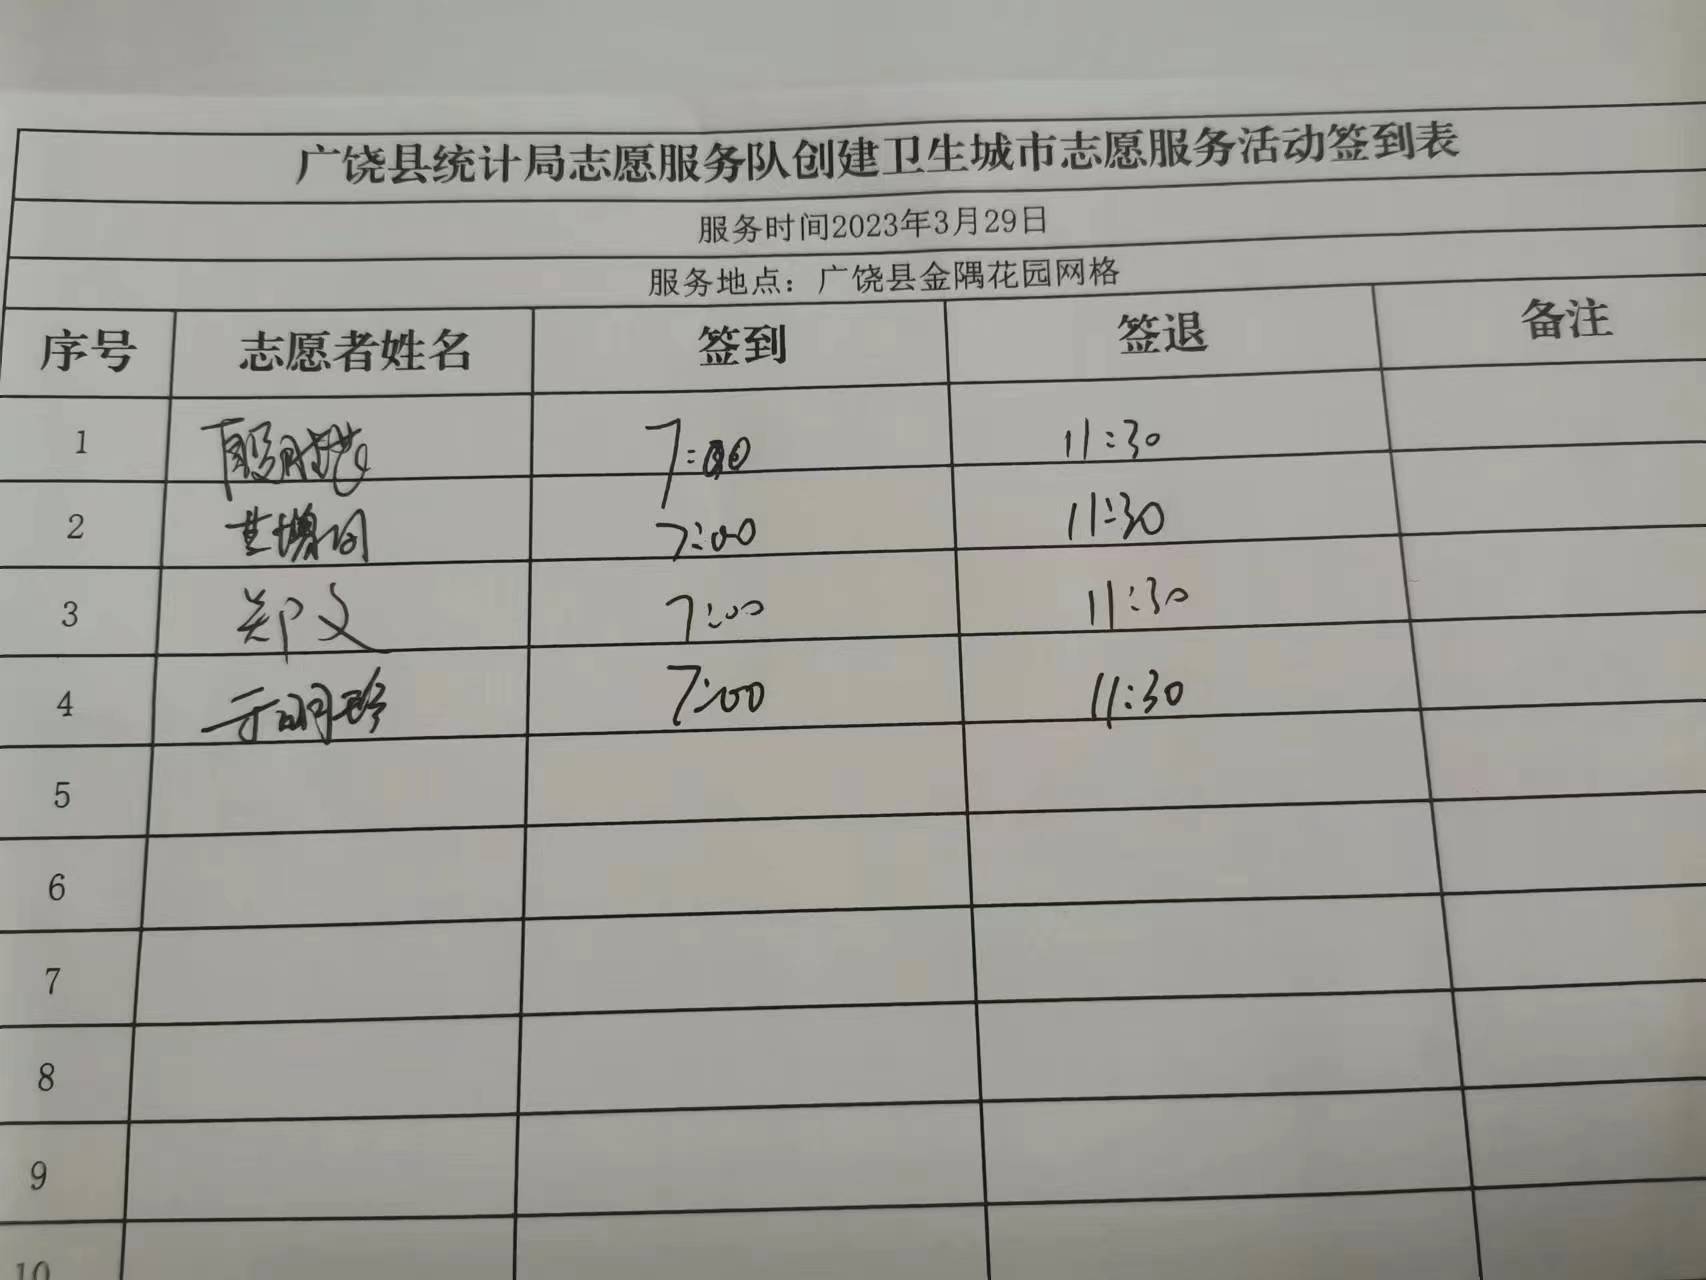 广饶县统计局志愿服务队创建卫生城市志愿服务活动签到表
服务时间2023年3月29日
服务地点：广饶县金隅花园网格
序号 志愿者姓名 签到 签退 备注
1 7:00 11:30
2 7:00 11:30
3 郑文 7:00 11:30
4 于明珍 7:00 11:30
5
6
7
8
9
10